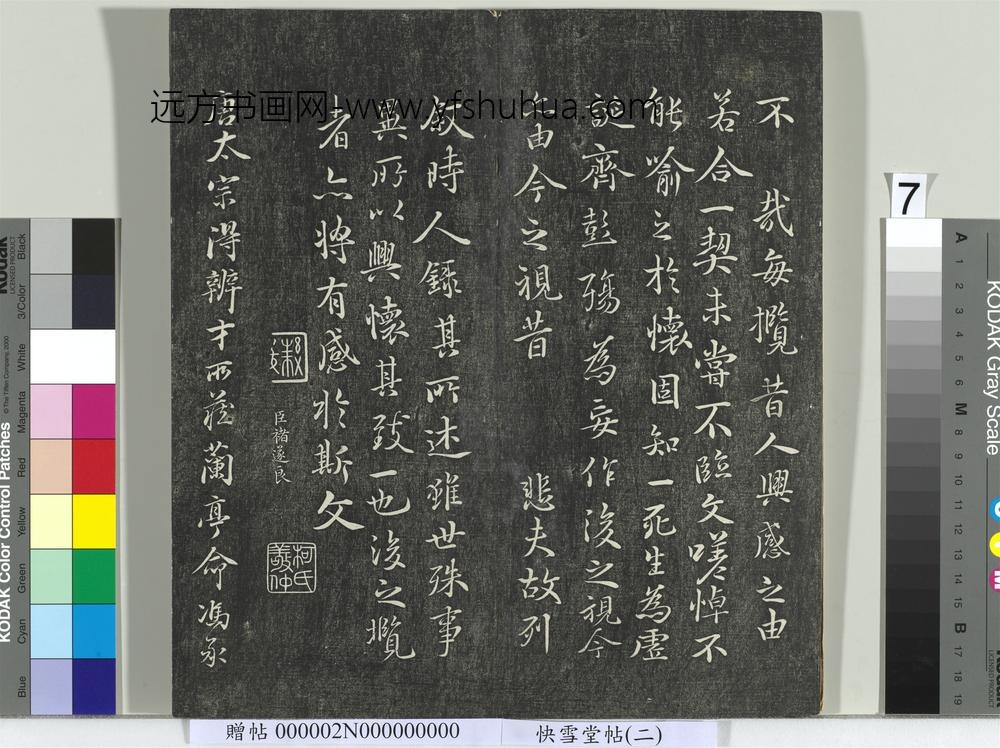 远方书画网-www.yfshuhua.com
不 哉每攬昔人興感之由
若合一契未嘗不臨文嗟悼不
能喻之於懷固知一死生為虛
誕齊彭殤為妄作後之視今
亦由今之視昔 悲夫故列
敘時人錄其所述雖世殊事
異所以興懷其致一也後之攬
者亦將有感於斯文
臣褚遂良
柯氏
唐太宗得辨才所藏蘭亭命馮承
贈帖 000002N000000000
快雪堂帖(二)
7
KODAK Color Control Patches
Blue
Cyan
Green
Yellow
Red
Magenta
White
3/Color
Black
KODAK Gray Scale
A 1 2 3 4 5 6 M 8 9 10 11 12 13 14 15 B 17 18 19